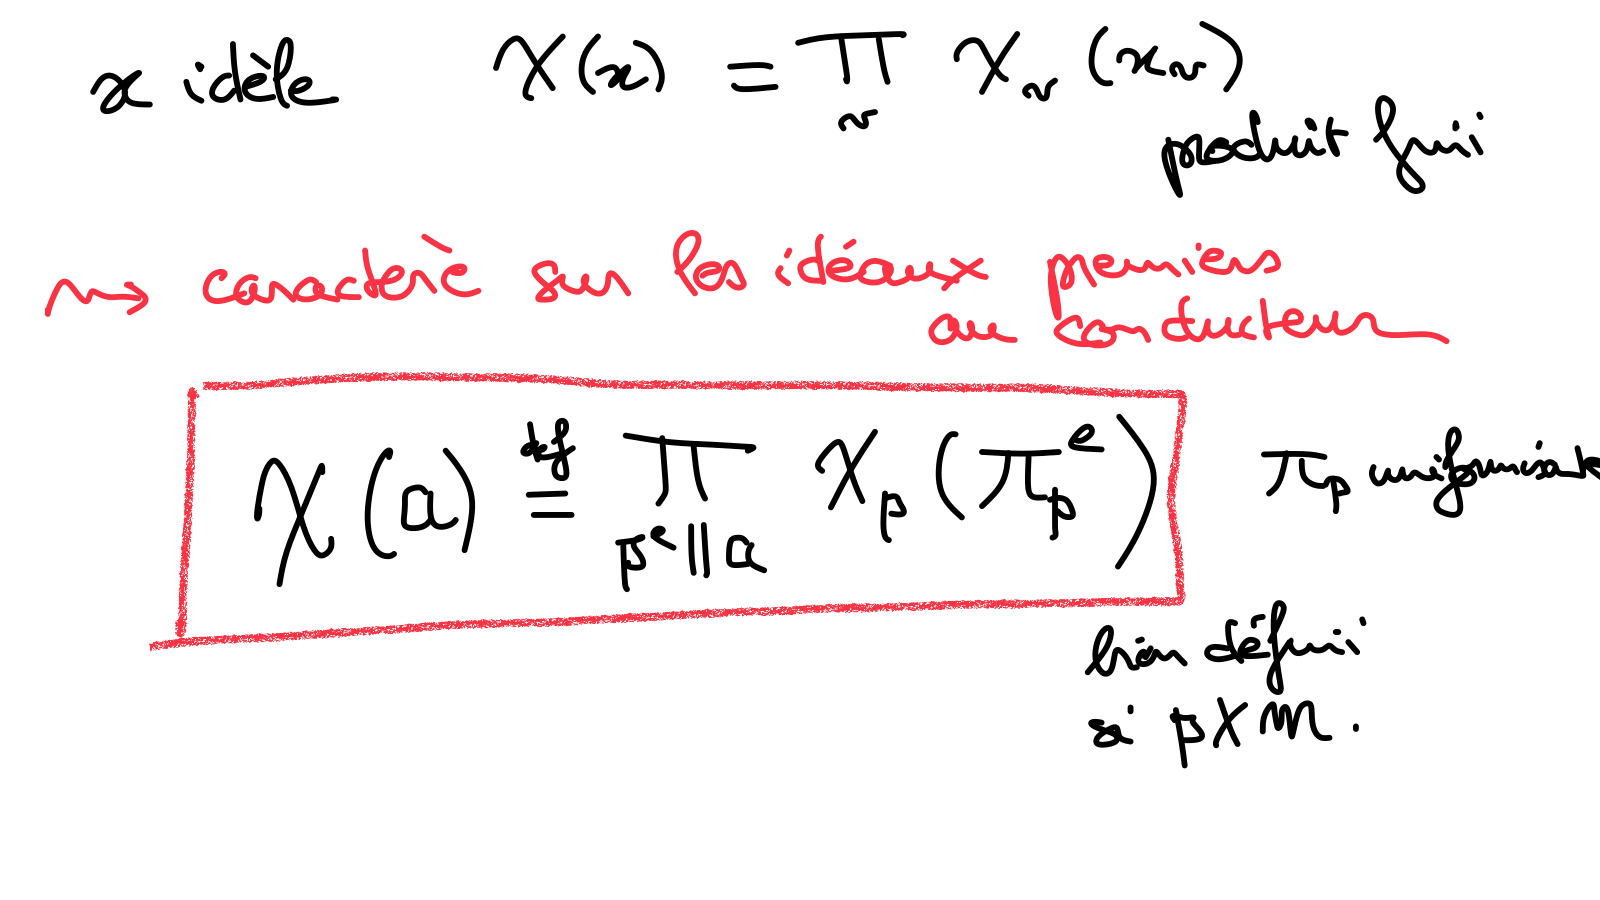 x idèle χ(x) = ∏_v χ_v (x_v)
produit fini
⇝ caractère sur les idéaux premiers
au conducteur
χ(a) def= ∏_{p^e || a} χ_p (π_p^e) π_p uniformisante
bien défini
si p ∤ m.